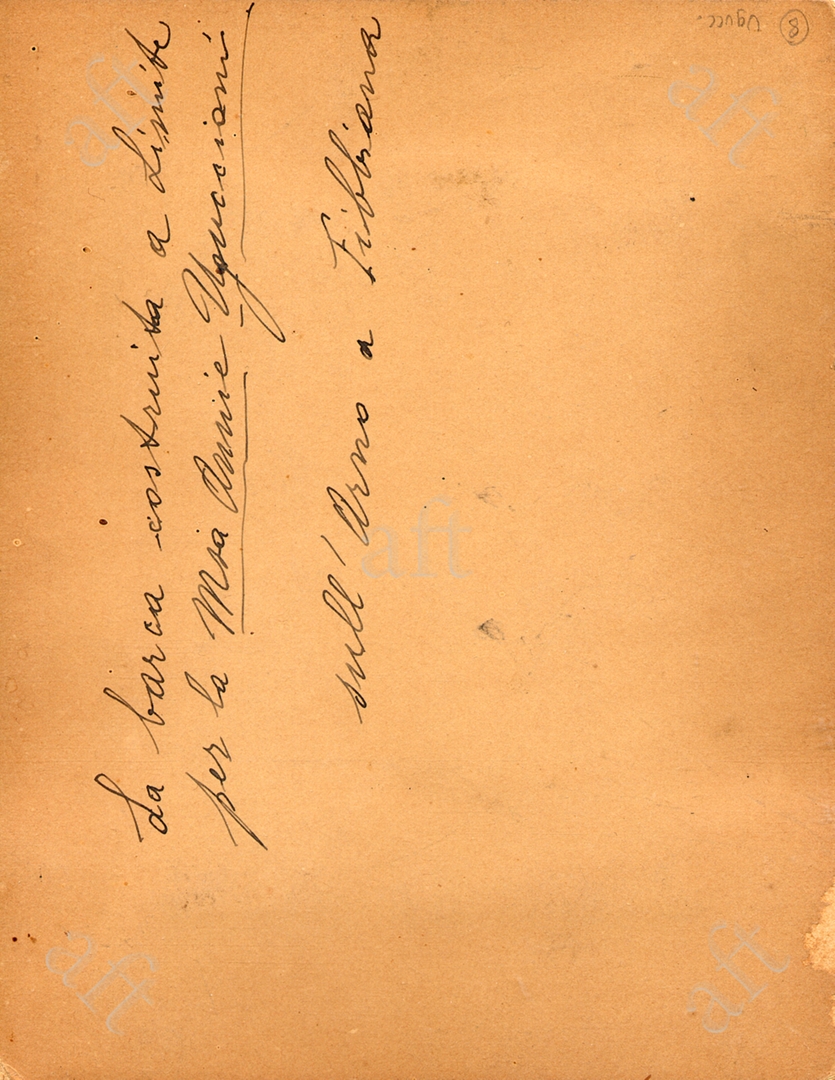 La barca costruita a Limite
per la Msa Annie Uguccioni
sull'Arno a Fibbiana
8 Ugucc.
aft
aft
aft
aft
aft